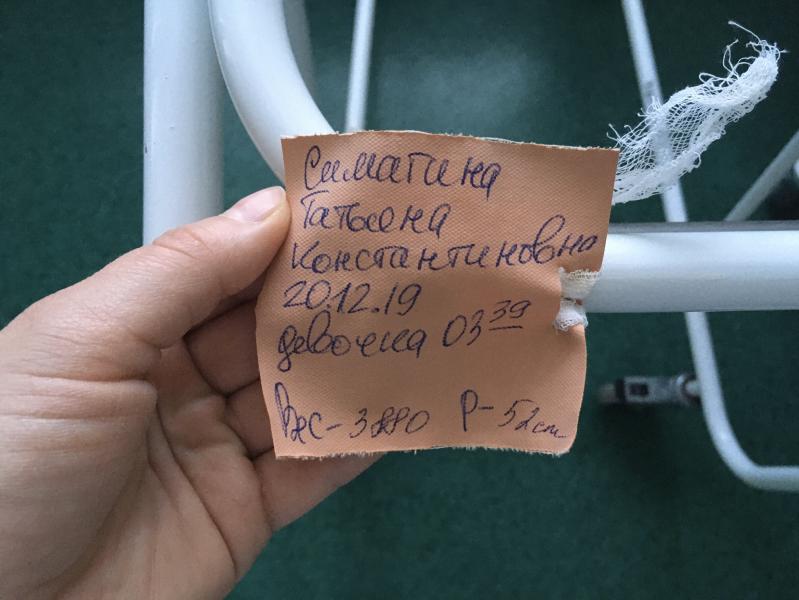 Симатина
Татьяна
Константиновна
20.12.19
девочка 03 39
Вес - 3880 Р - 52 см